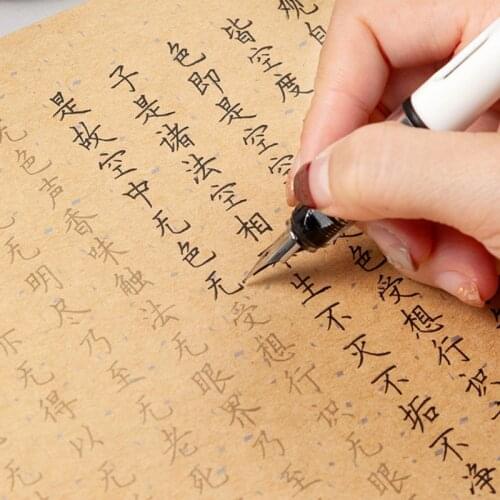 观自
皆空度
色即是空空色受想行识
子是诸法空相不生不灭不垢不净
是故空中无色无受想行识无眼
无色声香味触法无眼界乃至
无明尽乃至无老死
不无得以无
无